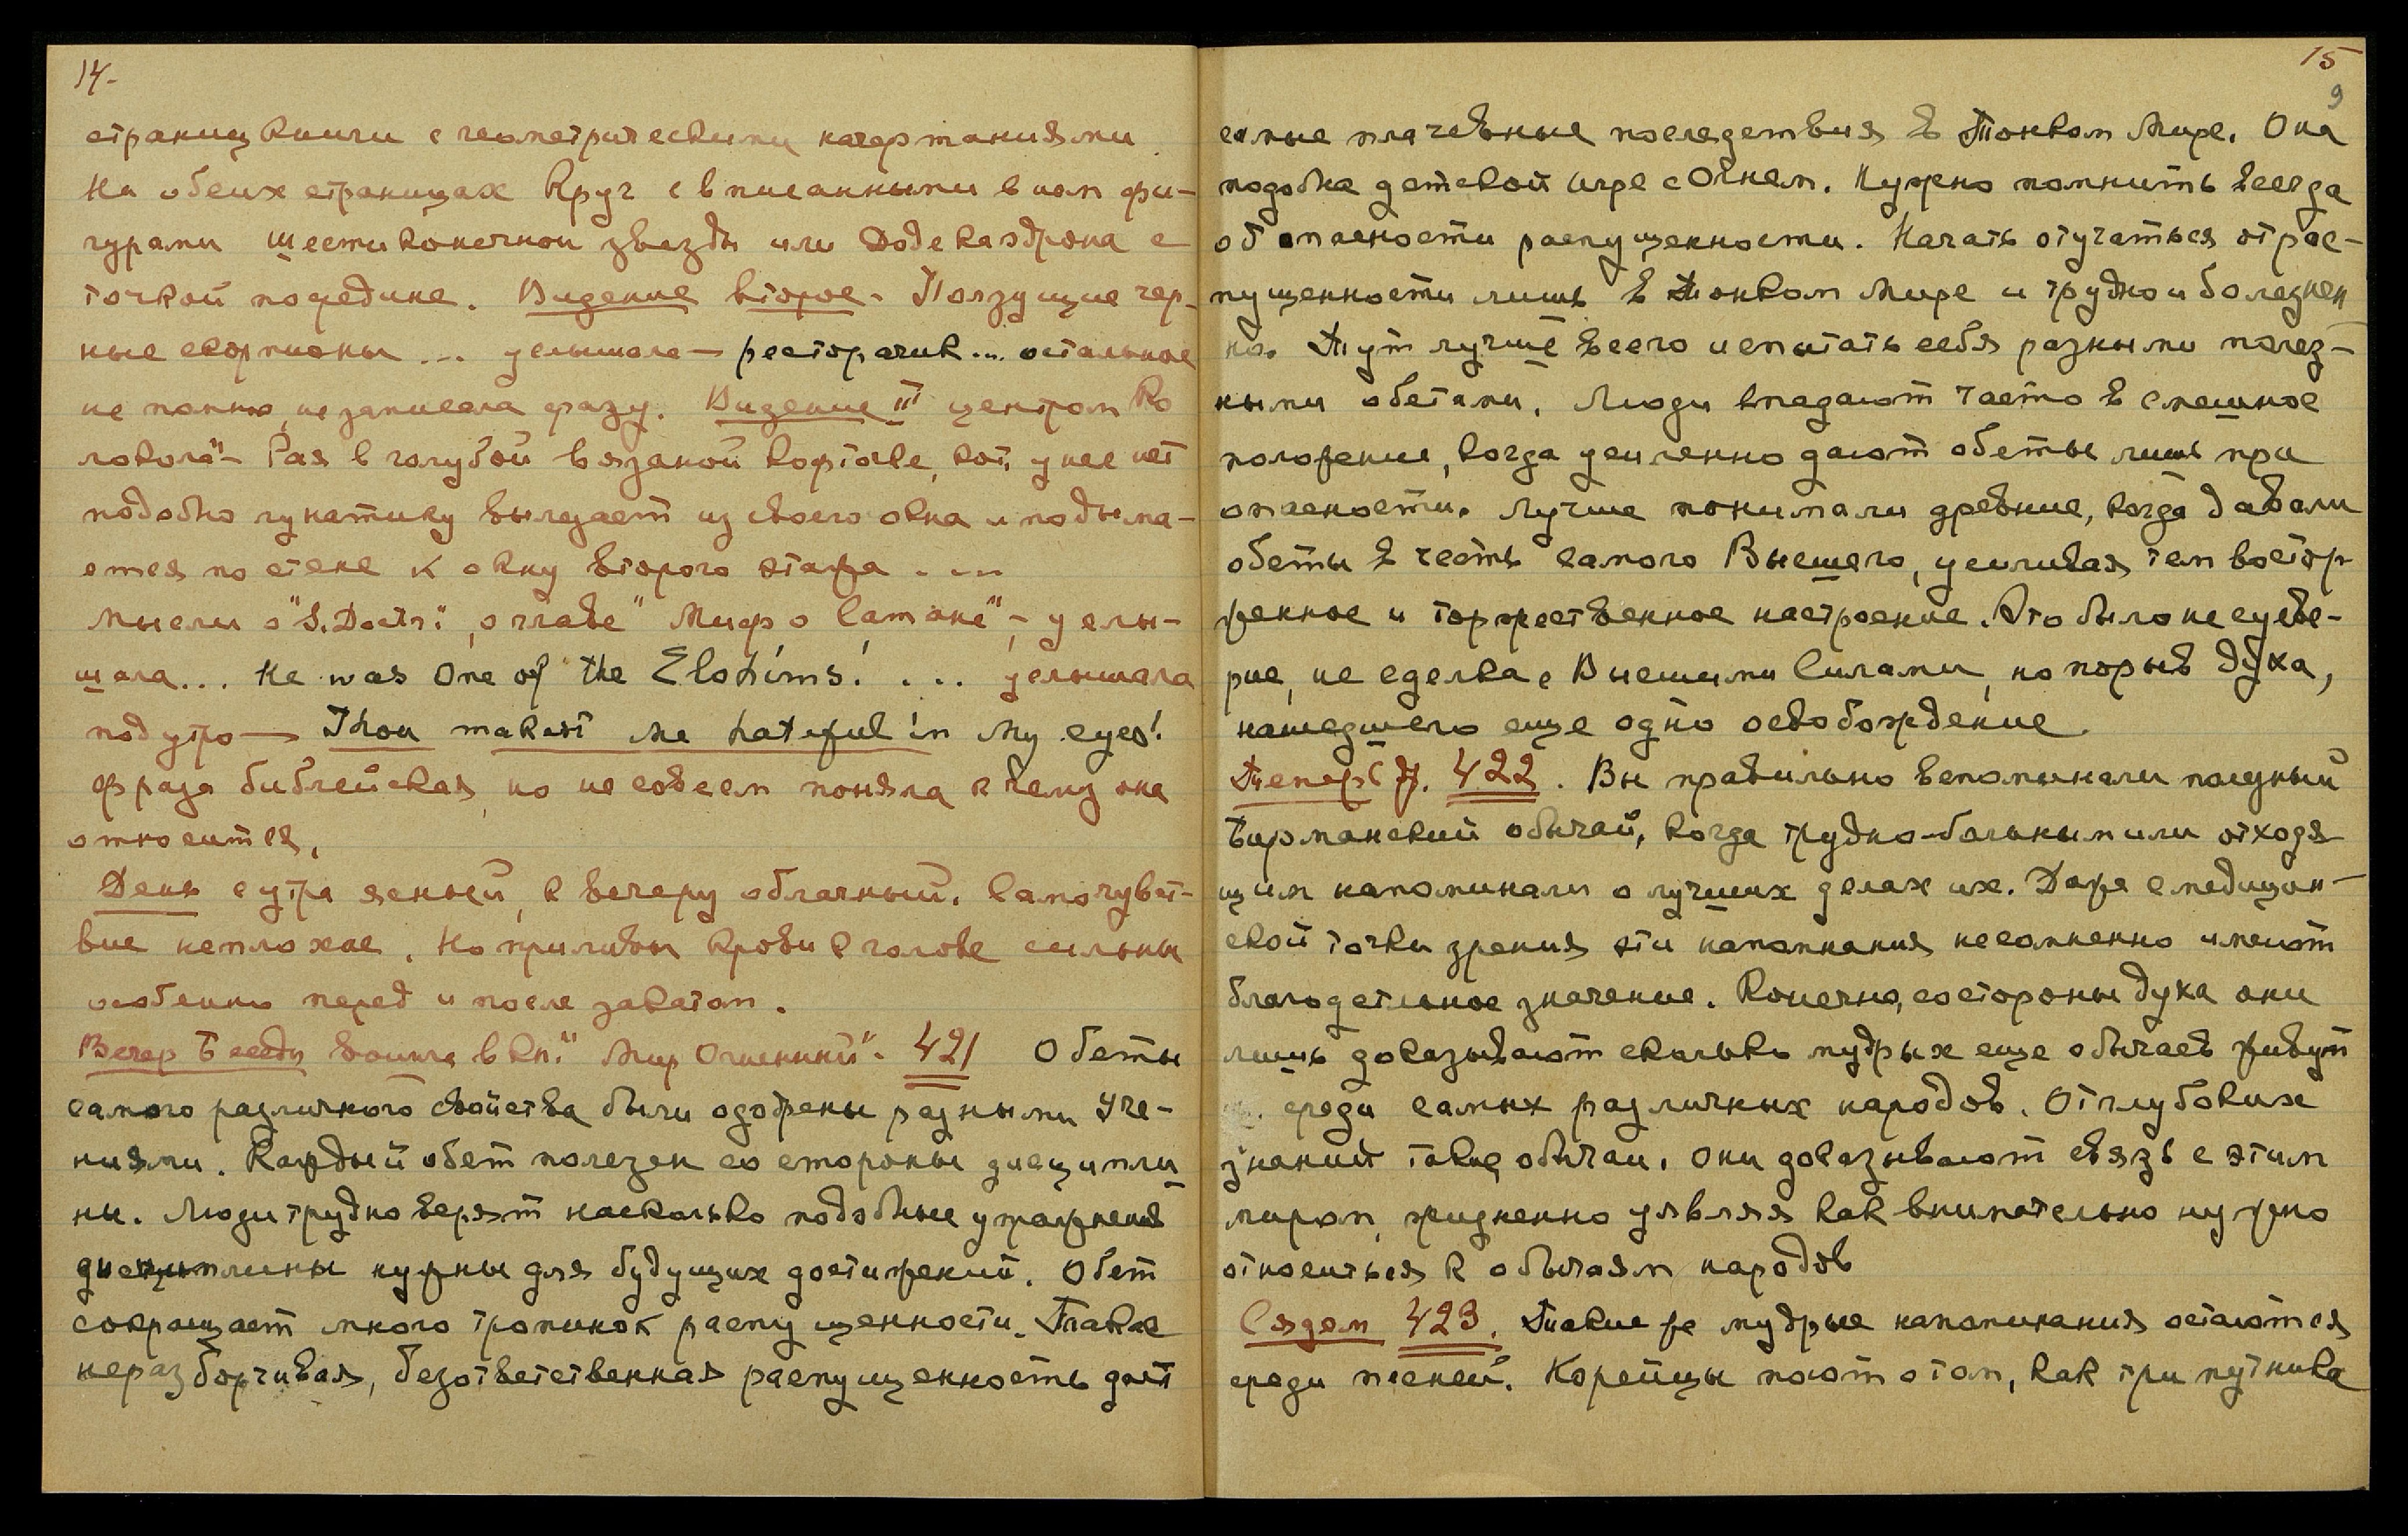 14-
страниц книги с геометрическими начертаниями.
На обеих страницах Круг с вписанными в нем фи-
гурами шестиконечной звезды или Додекаэдрона с
точкой посредине. Видение второе - Ползущие чер-
ные скорпионы ... услышала — ... остальное
не помню, не записала фразу. Видение III центром ко
локола" - Рая в голубой вязаной кофточке, кот. у нее нет
подобно лунатику вылезает из своего окна и подыма-
ется по стене к окну второго этажа ....
Мысли о "S. Doctr.", о главе "Миф о Сатане" - услы-
шала... He was One of the Elohims! .... услышала
под утро — Thou makest me hateful in My eyes!
Фраза библейская, но не совсем поняла к чему она
относится.
День с утра ясный, к вечеру облачный. Самочувст-
вие неплохое. Но приливы крови к голове сильны
особенно перед и после закатом.
Вечер Беседы вошла в кн. "Мир Огненный". 421 Обеты
самого различного свойства были одобрены разными Уче-
ниями. Каждый обет полезен со стороны дисципли
ны. Люди трудно верят насколько подобные упражнения
дисциплины нужны для будущих достижений. Обет
сокращает много тропинок распущенности. Такая
неразборчивая, безответственная распущенность дает
15
9
самые плачевные последствия в Тонком Мире. Она
подобна детской игре с Огнем. Нужно помнить всегда
об опасности распущенности. Начать отучаться от рас-
пущенности лишь в Тонком Мире и трудно и болезнен
но. Тут лучше всего испытать себя разными полез-
ными обетами. Люди впадают часто в смешное
положение, когда усиленно дают обеты лишь при
опасности. Лучше понимали древние, когда давали
обеты в честь самого Высшего, усиливая тем востор
женное и торжественное настроение. Это было не суеве-
рие, не сделка с Высшими Силами, но порыв духа,
нашедшего еще одно освобождение.
Теперь 7. 422. Вы правильно вспоминали полезный
Бирманский обычай, когда трудно-больным или отходя
щим напоминали о лучших делах их. Даже с медицин-
ской точки зрения эти напоминания несомненно имеют
благодетельное значение. Конечно, со стороны духа они
лишь доказывают сколько мудрых еще обычаев живут
среди самых различных народов. От глубоких
знаний такие обычаи. Они доказывают связь с этим
миром, жизненно уявляя как внимательно нужно
относиться к обычаям народов
Сядем 423. Такие же мудрые напоминания остаются
среди песней. Корейцы поют о том, как три путника